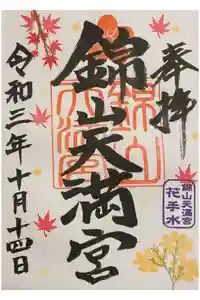 奉拝
錦山天満宮
令和三年十月十四日
錦山天満宮
花手水